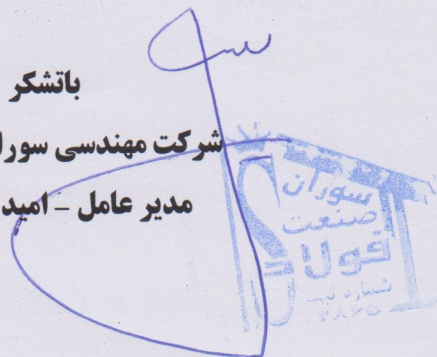 باتشکر
شرکت مهندسی سوران
مدیر عامل – امید
سوران
صنعت
فولاد
شماره ثبت
۲۸۶۵